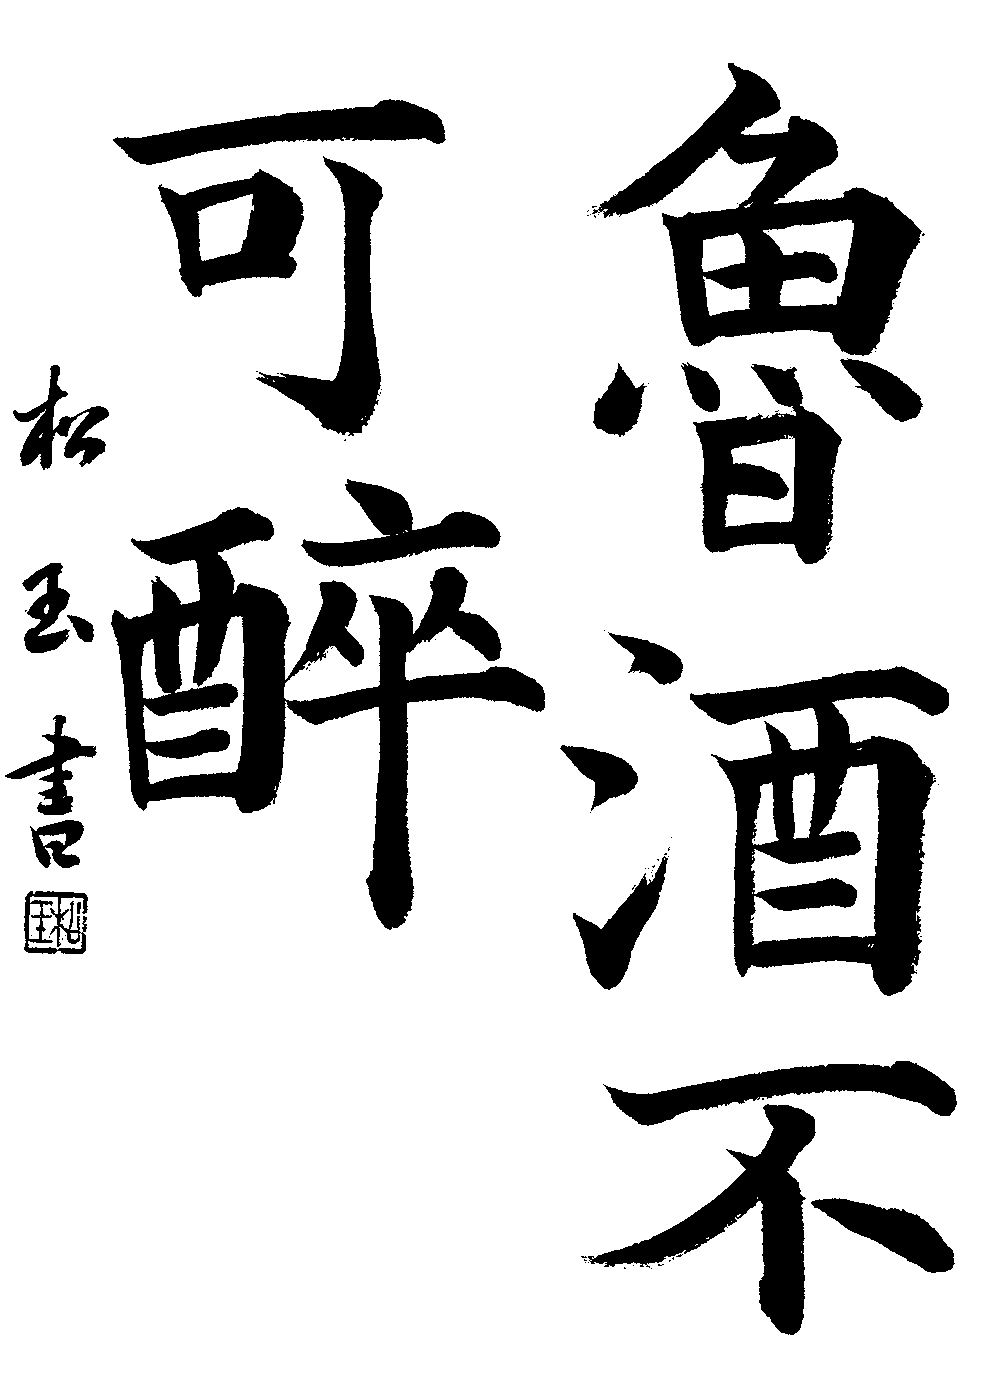 魯酒不
可醉
松玉書
松玉